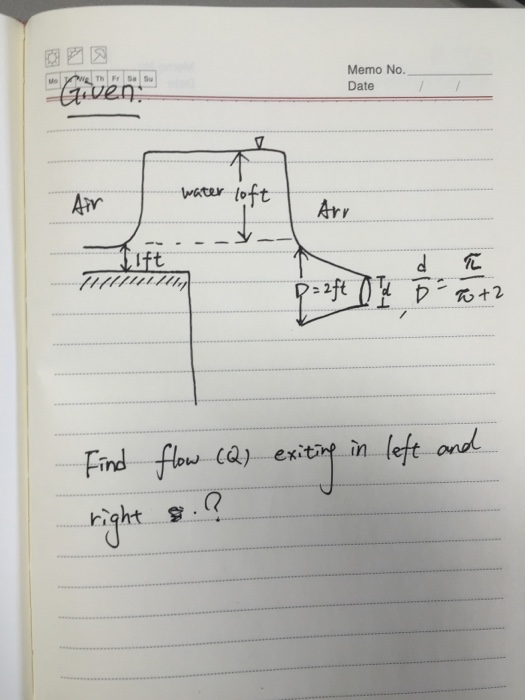 Memo No.
Mo Tu We Th Fr Sa Su
Date / /
Given:
Air
water 10ft
Air
1ft
D = 2ft
d
d/D = π/π+2
Find flow (Q) exiting in left and
right . ?